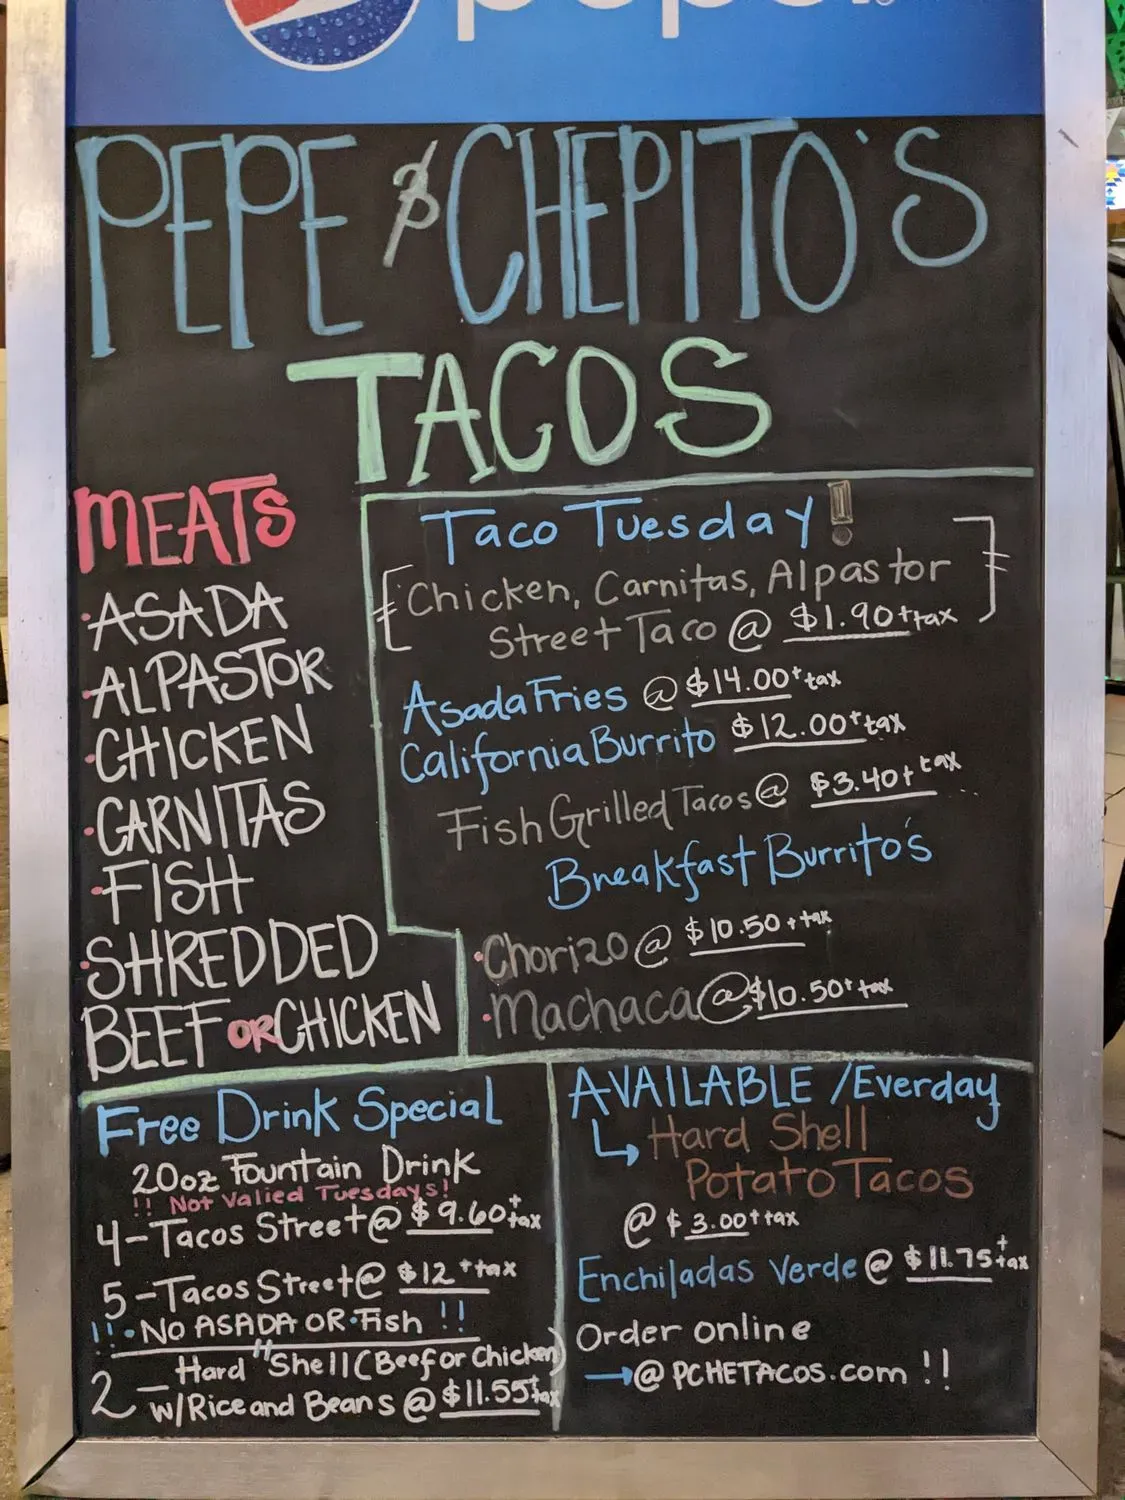 pepsi
PEPE & CHEPITO'S
TACOS
MEATS
• ASADA
• ALPASTOR
• CHICKEN
• CARNITAS
• FISH
• SHREDDED
BEEF OR CHICKEN
Taco Tuesday!
[Chicken, Carnitas, Alpastor
Street Taco @ $1.90+tax]
Asada Fries @ $14.00+tax
California Burrito $12.00+tax
Fish Grilled Tacos @ $3.40+tax
Breakfast Burrito's
• Chorizo @ $10.50+tax
• Machaca @ $10.50+tax
Free Drink Special
20oz Fountain Drink
!! Not Valied Tuesdays!
4-Tacos Street @ $9.60+tax
5-Tacos Street @ $12+tax
!!• NO ASADA OR•Fish !!
2 - Hard "Shell (Beef or Chicken)
w/Rice and Beans @ $11.55+tax
AVAILABLE /Everday
↳ Hard Shell
Potato Tacos
@ $3.00+tax
Enchiladas Verde @ $11.75+tax
Order online
→@ PCHETACOS.com !!